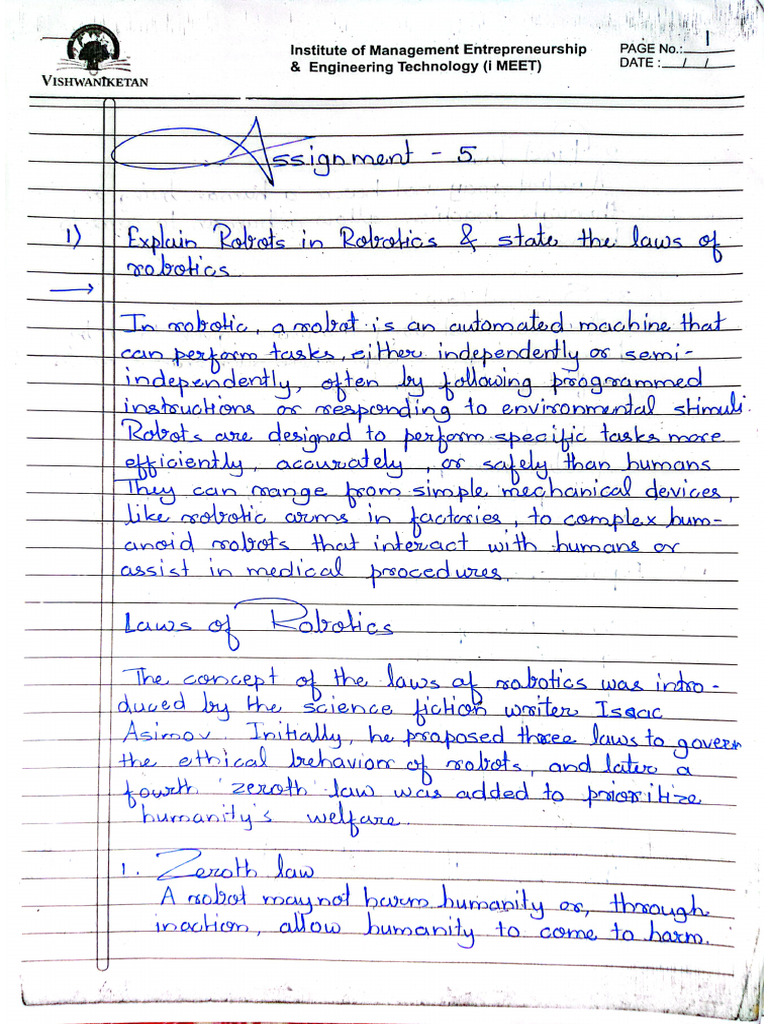 Institute of Management Entrepreneurship
& Engineering Technology (i MEET)
PAGE No.: 1
DATE : / /
VISHWANIKETAN
Assignment - 5
1) Explain Robots in Robotics & state the laws of
robotics
→
In robotic, a robot is an automated machine that
can perform tasks, either independently or semi-
independently, often by following programmed
instructions or responding to environmental stimuli.
Robots are designed to perform specific tasks more
efficiently, accurately, or safely than humans
They can range from simple mechanical devices,
like robotic arms in factories, to complex hum-
anoid robots that interact with humans or
assist in medical procedures.
Laws of Robotics
The concept of the laws of robotics was intro-
duced by the science fiction writer Isaac
Asimov. Initially, he proposed three laws to govern
the ethical behavior of robots, and later a
fourth 'zeroth' law was added to prioritize
humanity's welfare.
1. Zeroth law
A robot may not harm humanity or, through
inaction, allow humanity to come to harm.